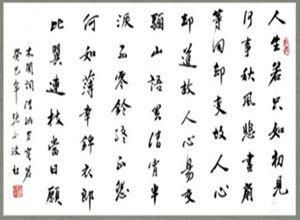 人生若只如初見
何事秋風悲畫扇
等閒却变故人心
却道故人心易变
驪山語罷清宵半
淚雨零鈴終不怨
何如薄幸錦衣郎
比翼連枝當日願
木蘭詞
癸巳年